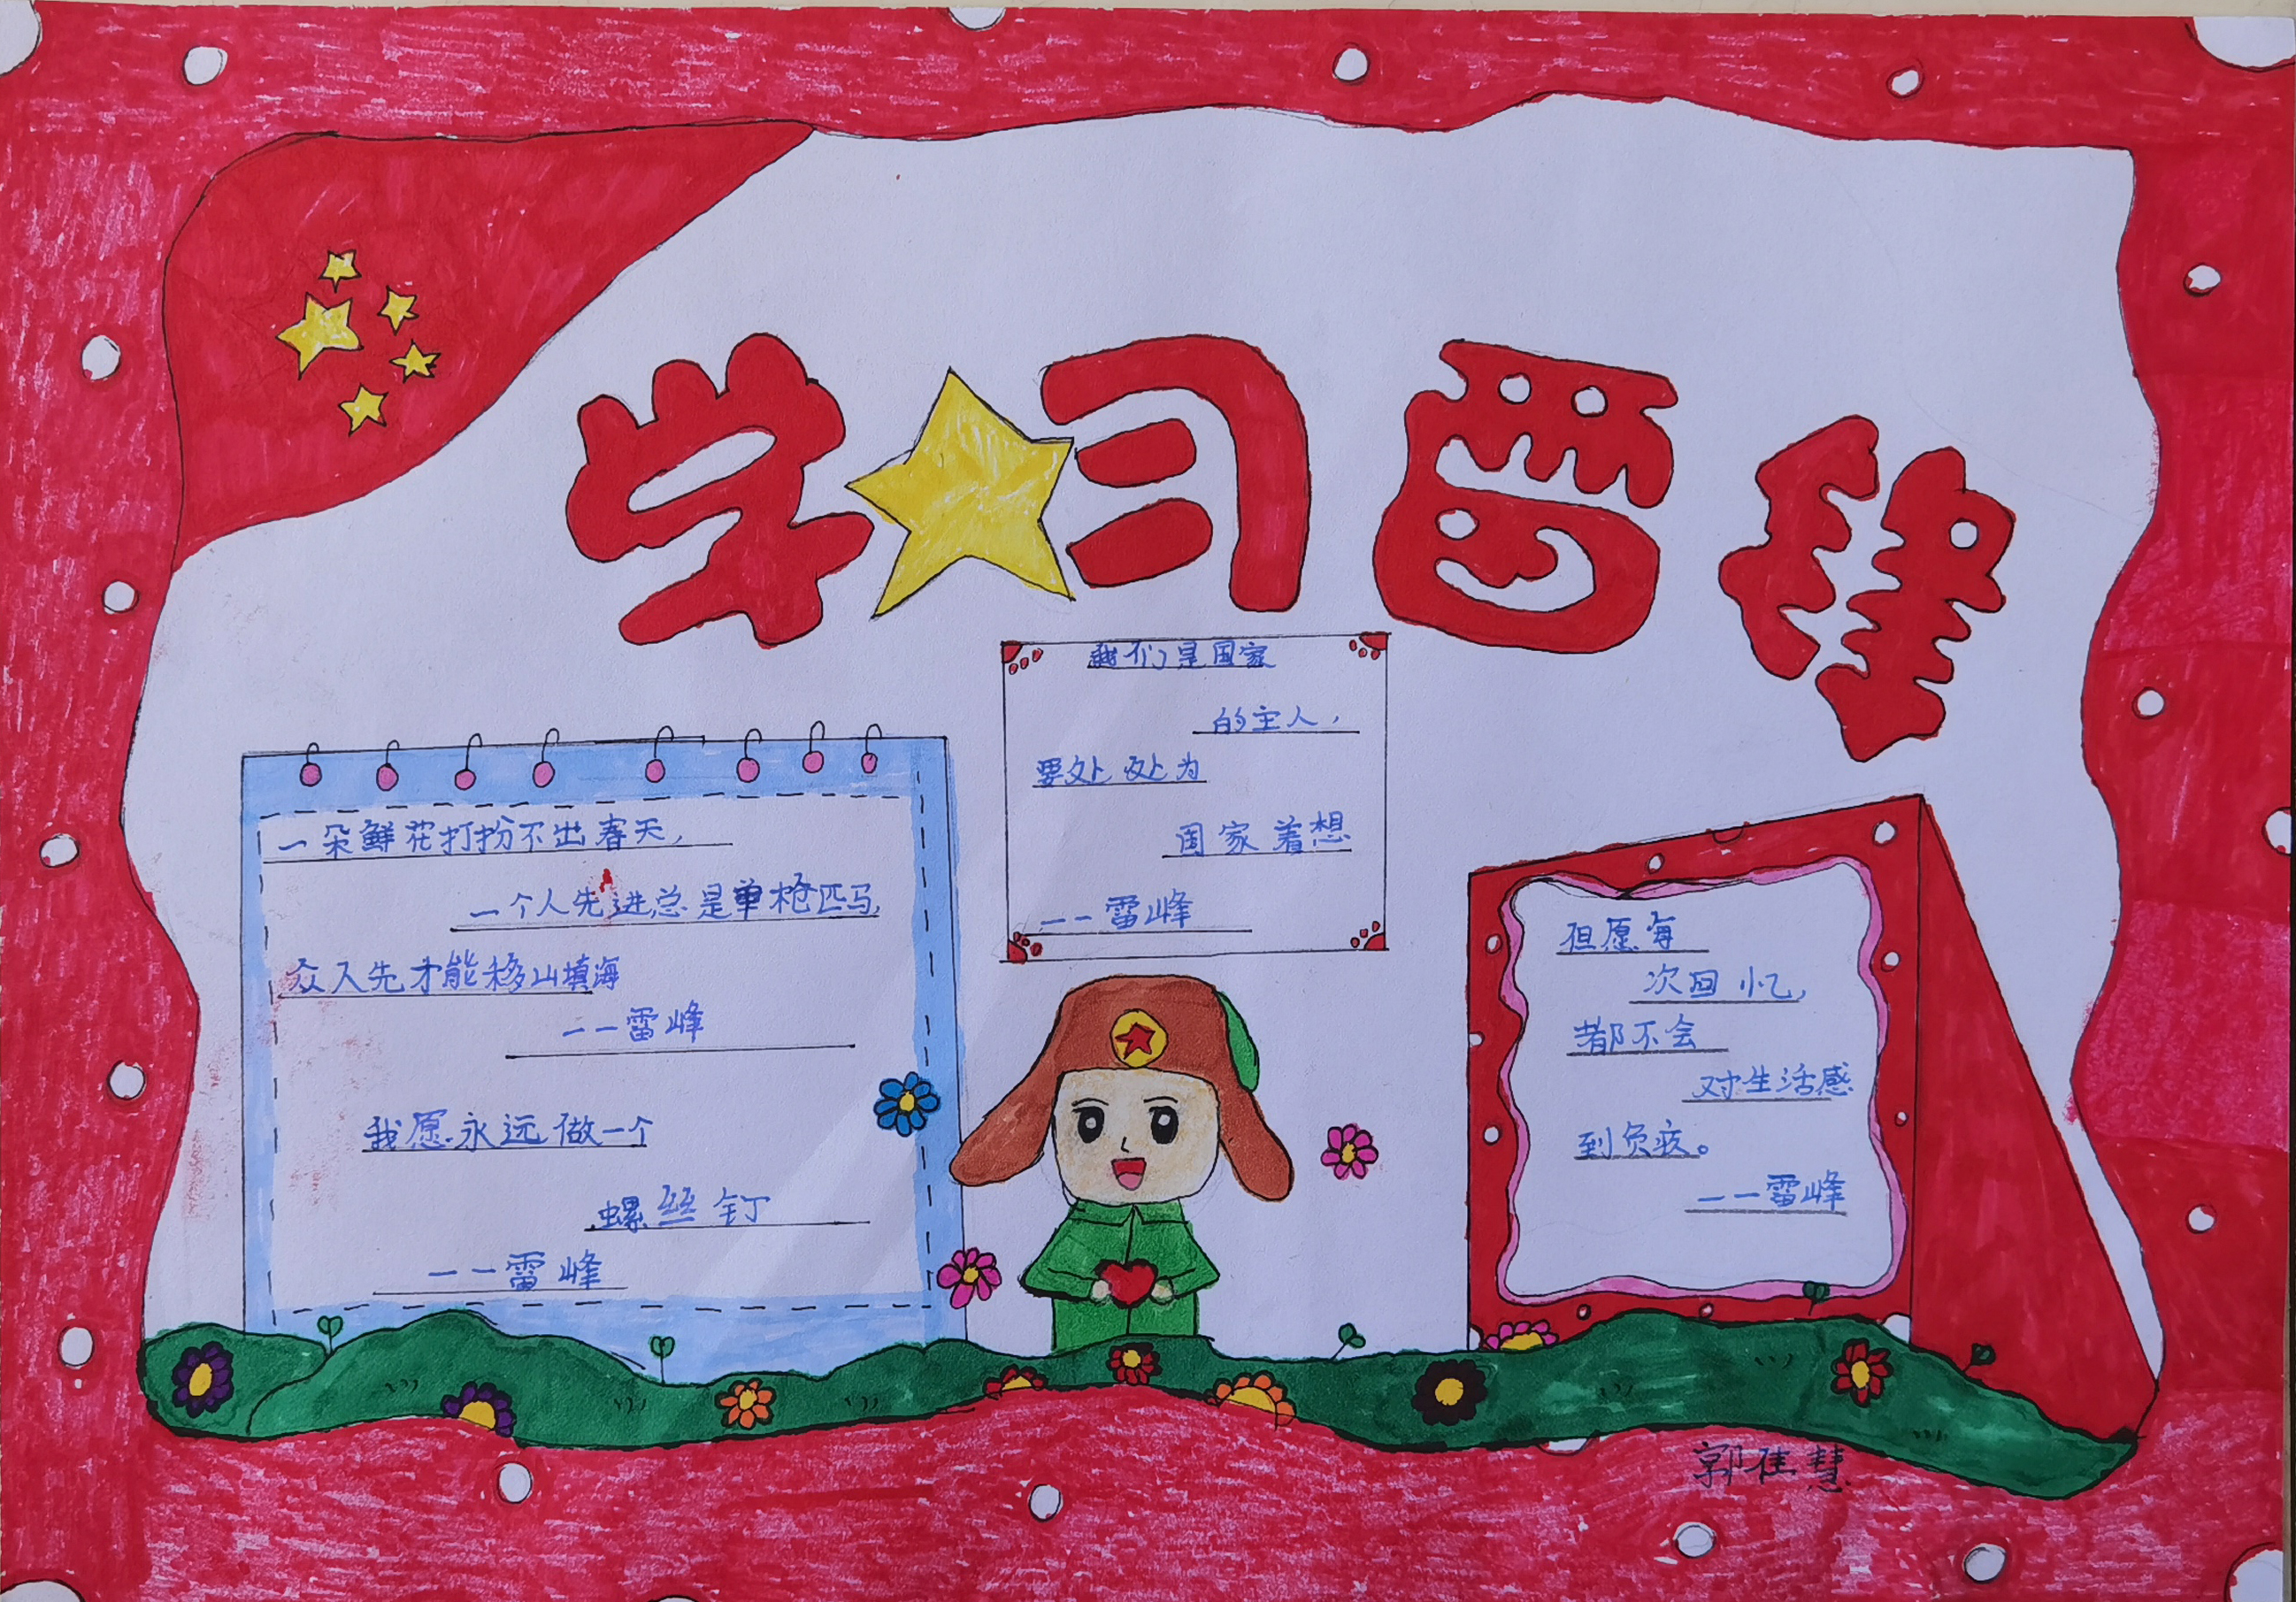 学习雷锋
一朵鲜花打扮不出春天,
一个人先进总是单枪匹马,
众人先才能移山填海
——雷峰
我愿永远做一个
螺丝钉
——雷峰
我们是国家
的主人,
要处处为
国家着想
——雷峰
但愿每
次回忆,
都不会
对生活感
到负疚。
——雷峰
郭佳慧